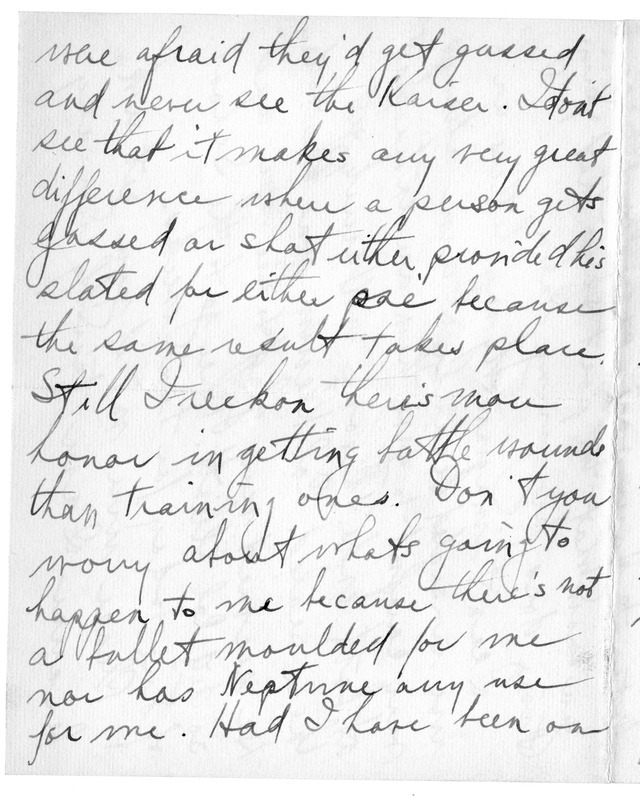 were afraid they'd get gassed
and never see the Kaiser. I don't
see that it makes any very great
difference where a person gets
gassed or shot either, provided his
slated for either because
the same result takes place.
Still I reckon there's more
honor in getting battle wounds
than training ones. Don't you
worry about whats going to
happen to me because there's not
a bullet moulded for me
nor has Neptune any use
for me. Had I have been on